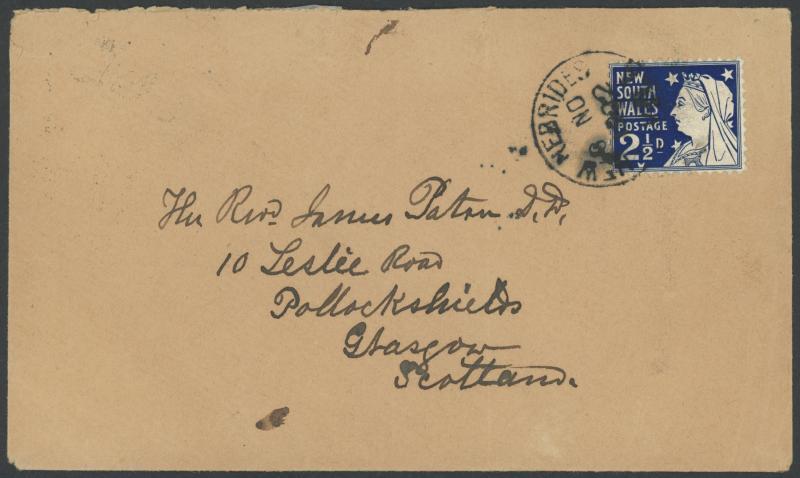 NEW HEBRIDES
NO
NEW
SOUTH
WALES
POSTAGE
2½D
The Revd. James Paton D.D.,
10 Leslie Road
Pollockshields
Glasgow
Scotland.